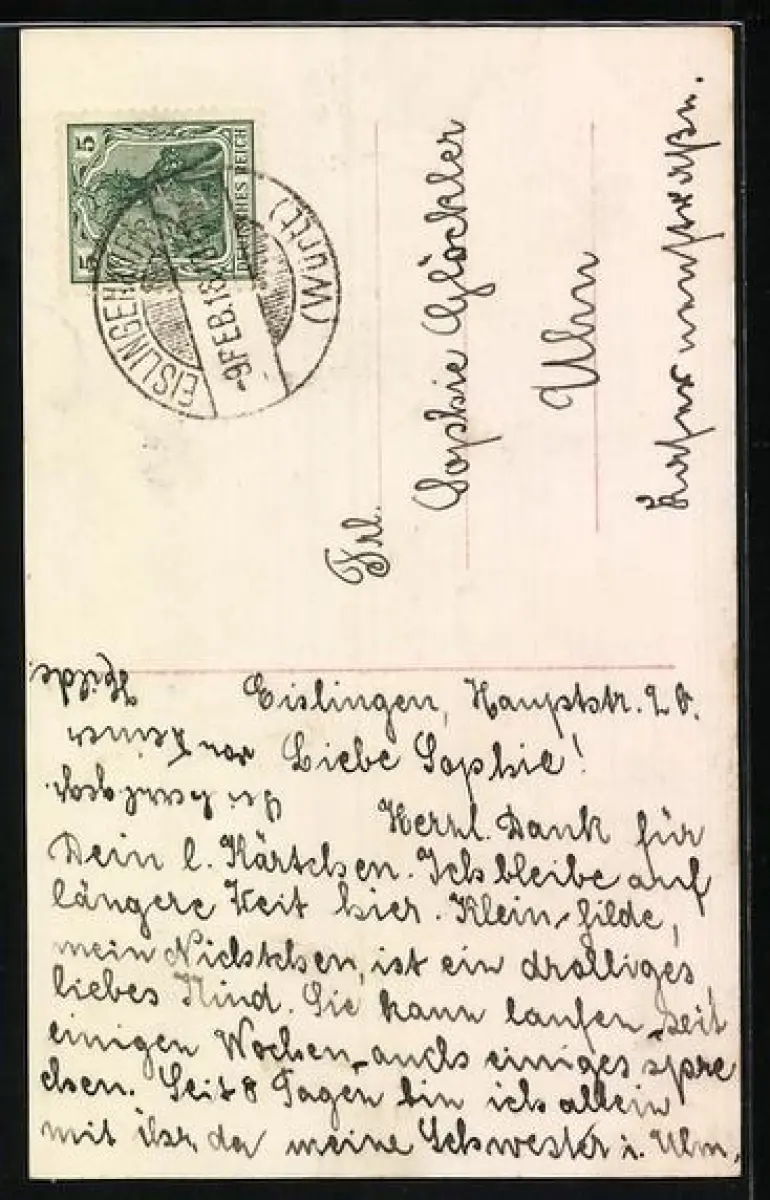 5
5
DEUTSCHES REICH
EISLINGEN
-9 FEB.
(Württ)
Frl.
Sophie Glöckler
Ulm
Eislingen, Hauptstr. 26.
Liebe Sophie!
Herzl. Dank für
Dein l. Kärtchen. Ich bleibe auf
längere Zeit hier. Klein-Hilde,
mein Nichtchen, ist ein drolliges
liebes Kind. Sie kann laufen seit
einigen Wochen, auch einiges spre
chen. Seit 8 Tagen bin ich allein
mit ihr, da meine Schwester i. Ulm.
Sei herzl. gegr.
von Deiner